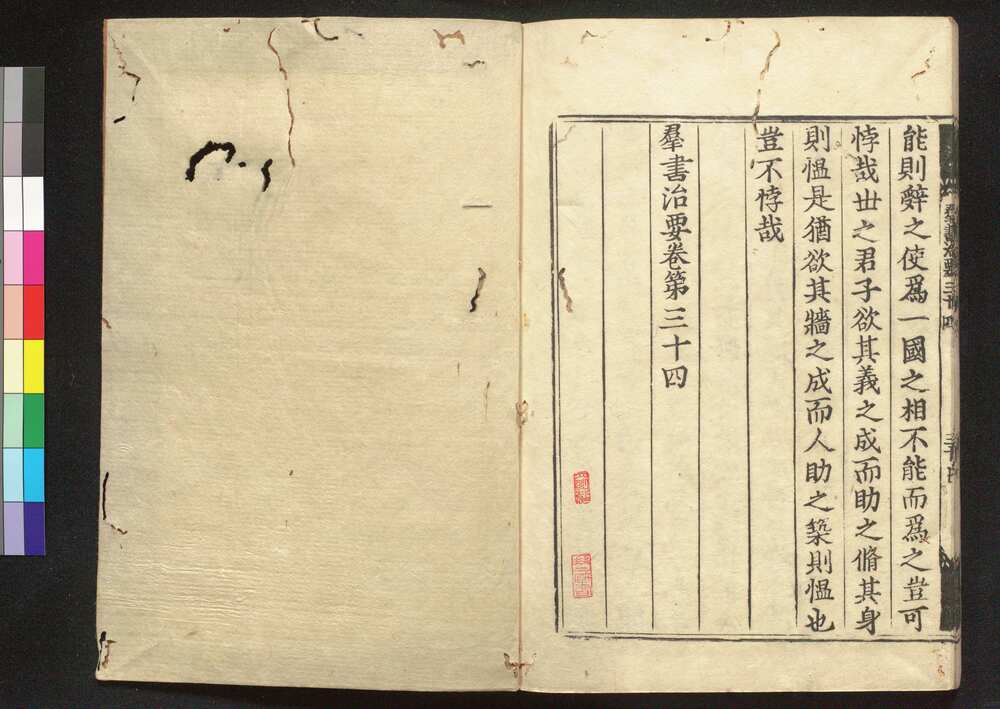 能則辤之使爲一國之相不能而爲之豈可
悖哉世之君子欲其義之成而助之脩其身
則慍是猶欲其牆之成而人助之築則慍也
豈不悖哉
羣書治要卷第三十四